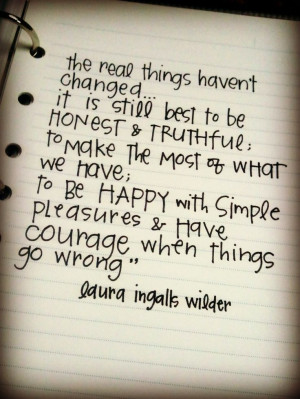 the real things haven't
changed...
it is still best to be
HONEST & TRUTHful;
to MAKE THE MOST of WHAT
we HAVE;
to BE HAPPY with Simple
pleasures & HAVE
courage when things
go wrong"
laura ingalls wilder